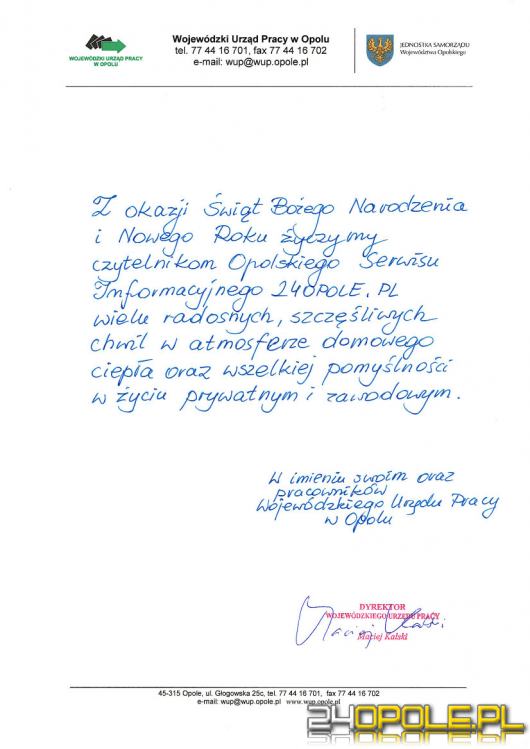 Wojewódzki Urząd Pracy w Opolu
tel. 77 44 16 701, fax 77 44 16 702
e-mail: wup@wup.opole.pl
WOJEWÓDZKI URZĄD PRACY
W OPOLU
JEDNOSTKA SAMORZĄDU
Województwa Opolskiego
Z okazji Świąt Bożego Narodzenia
i Nowego Roku życzymy
czytelnikom Opolskiego Serwisu
Informacyjnego 24OPOLE.PL
wielu radosnych, szczęśliwych
chwil w atmosferze domowego
ciepła oraz wszelkiej pomyślności
w życiu prywatnym i zawodowym.
W imieniu swoim oraz
pracowników
Wojewódzkiego Urzędu Pracy
w Opolu
DYREKTOR
WOJEWÓDZKIEGO URZĘDU PRACY
Maciej Kalski
Maciej Kalski
45-315 Opole, ul. Głogowska 25c, tel. 77 44 16 701, fax 77 44 16 702
e-mail: wup@wup.opole.pl www.wup.opole.pl
24OPOLE.PL